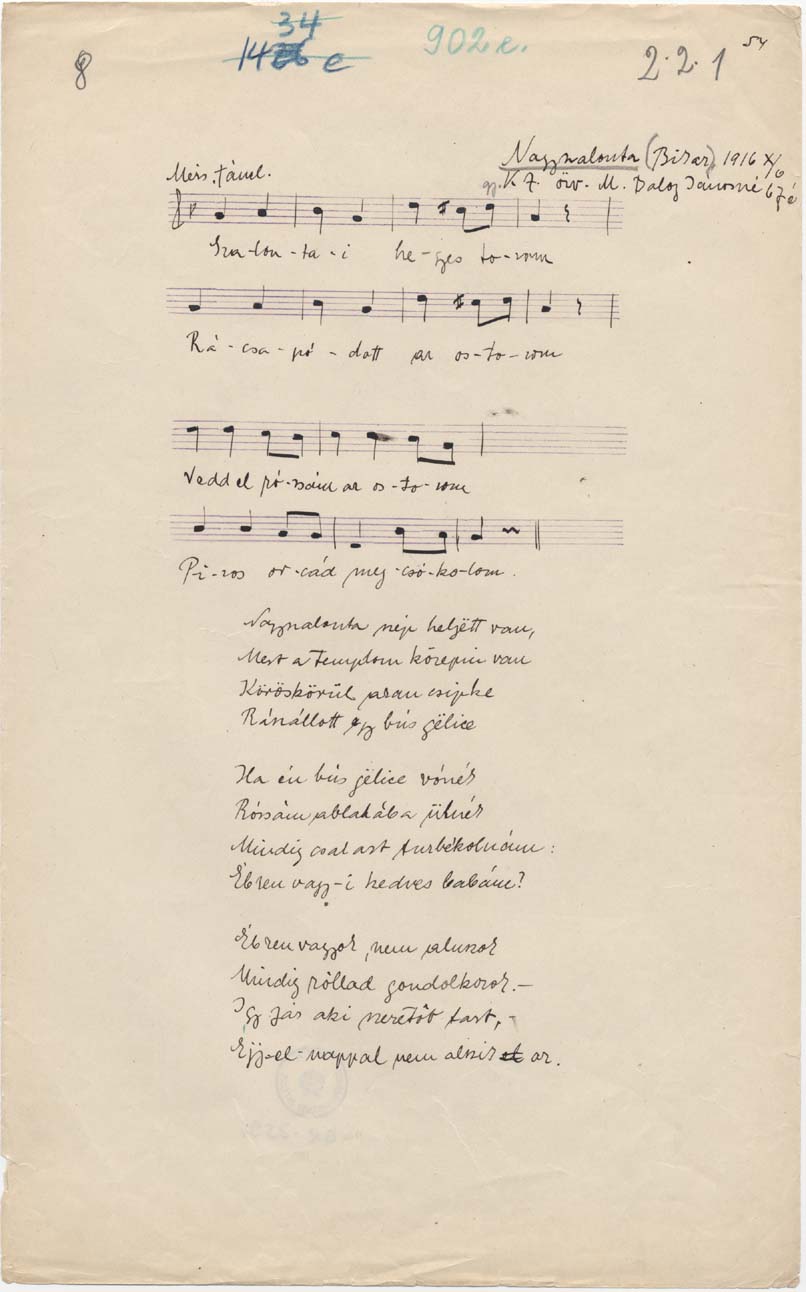 8
34
14 e
902 e.
2.2.1
54
Nagyszalonta (Bihar) 1916 X/6
gy. K Z. özv. M. Balog Jánosné 67 é
Mérs. táncl.
Sza-lon-ta-i he-gyes to-rom
Rá-csa-pó-dott az os-to-rom
Vedd el ró-zsám az os-to-rom
Pi-ros or-cád meg-csó-ko-lom.
Nagyszalonta szép helyëtt van,
Mert a templom közepin van
Köröskörül arany csipke
Ránállott ëgy bús gëlice
Ha én bús gëlice vónék
Rózsám ablakába ülnék
Mindig csak azt turbékolnám:
Ébren vagy-i kedves babám?
Ébren vagyok, nem aluszok
Mindig róllad gondolkozok.–
Igy jár aki szeretőt tart,–
Éjj-el-nappal nem alszik az.